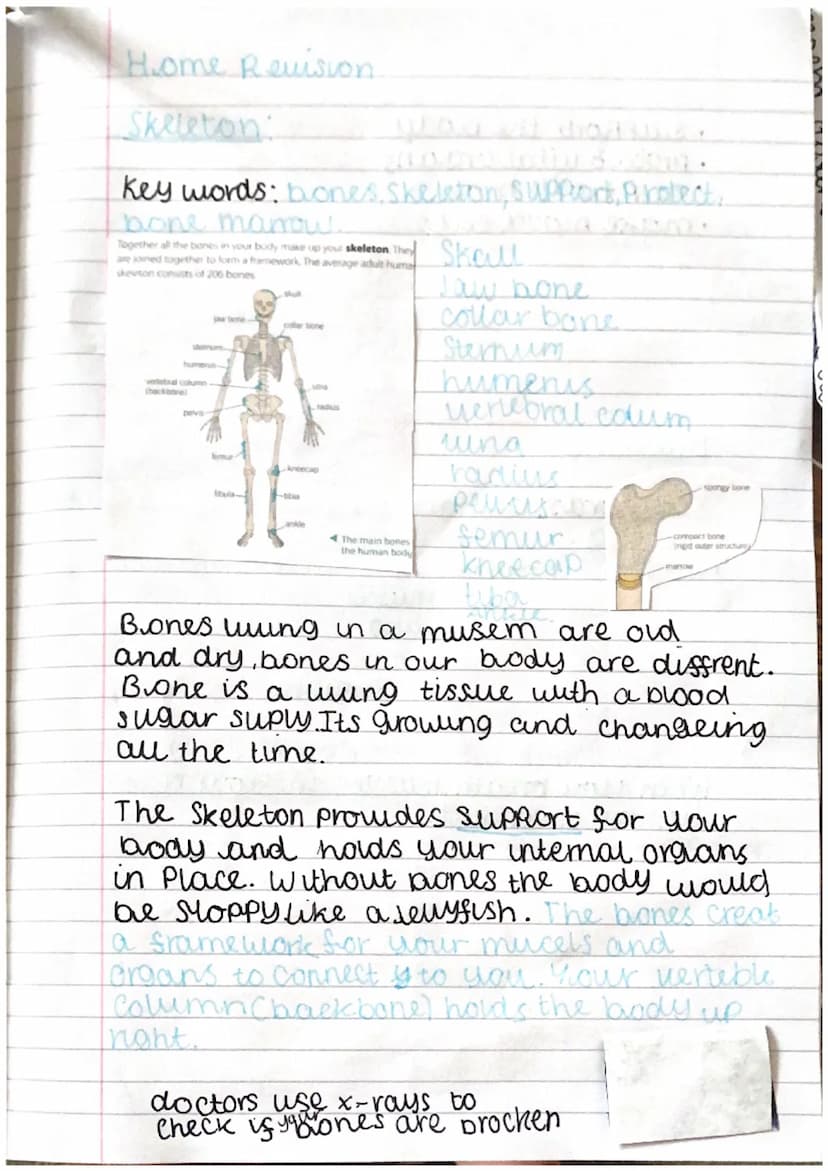 Home Revision
Skeleton:
Key words: bones, Skeleton, Support, Protect,
bone marrow.
Together all the bones in your body make up your skeleton. They
are joined together to form a framework. The average adult huma
skeleton consists of 206 bones.
skull
jaw bone
collar bone
sternum
humerus
vertebral column
(backbone)
ulna
radius
pelvis
femur
kneecap
fibula
tibia
ankle
◄ The main bones
the human body
Skull
Jaw bone
collar bone
Sternum
humerus
vertebral colum
ulna
radius
pelvis
femur
kneecap
tiba
Ankle
spongy bone
compact bone
(rigid outer structure)
marrow
Bones living in a musem are old
and dry, bones in our body are dissrent.
Bone is a living tissue with a blood
sugar suply. Its growing and changeing
all the time.
The Skeleton provides support for your
body and holds your internal organs
in Place. Without bones the body would
be sloppy like a Jellyfish. The bones creat
a framework for your mucels and
organs to connect to you. Your verteble
Column (backbone) holds the body up
right.
doctors use x-rays to
check is your bones are brocken